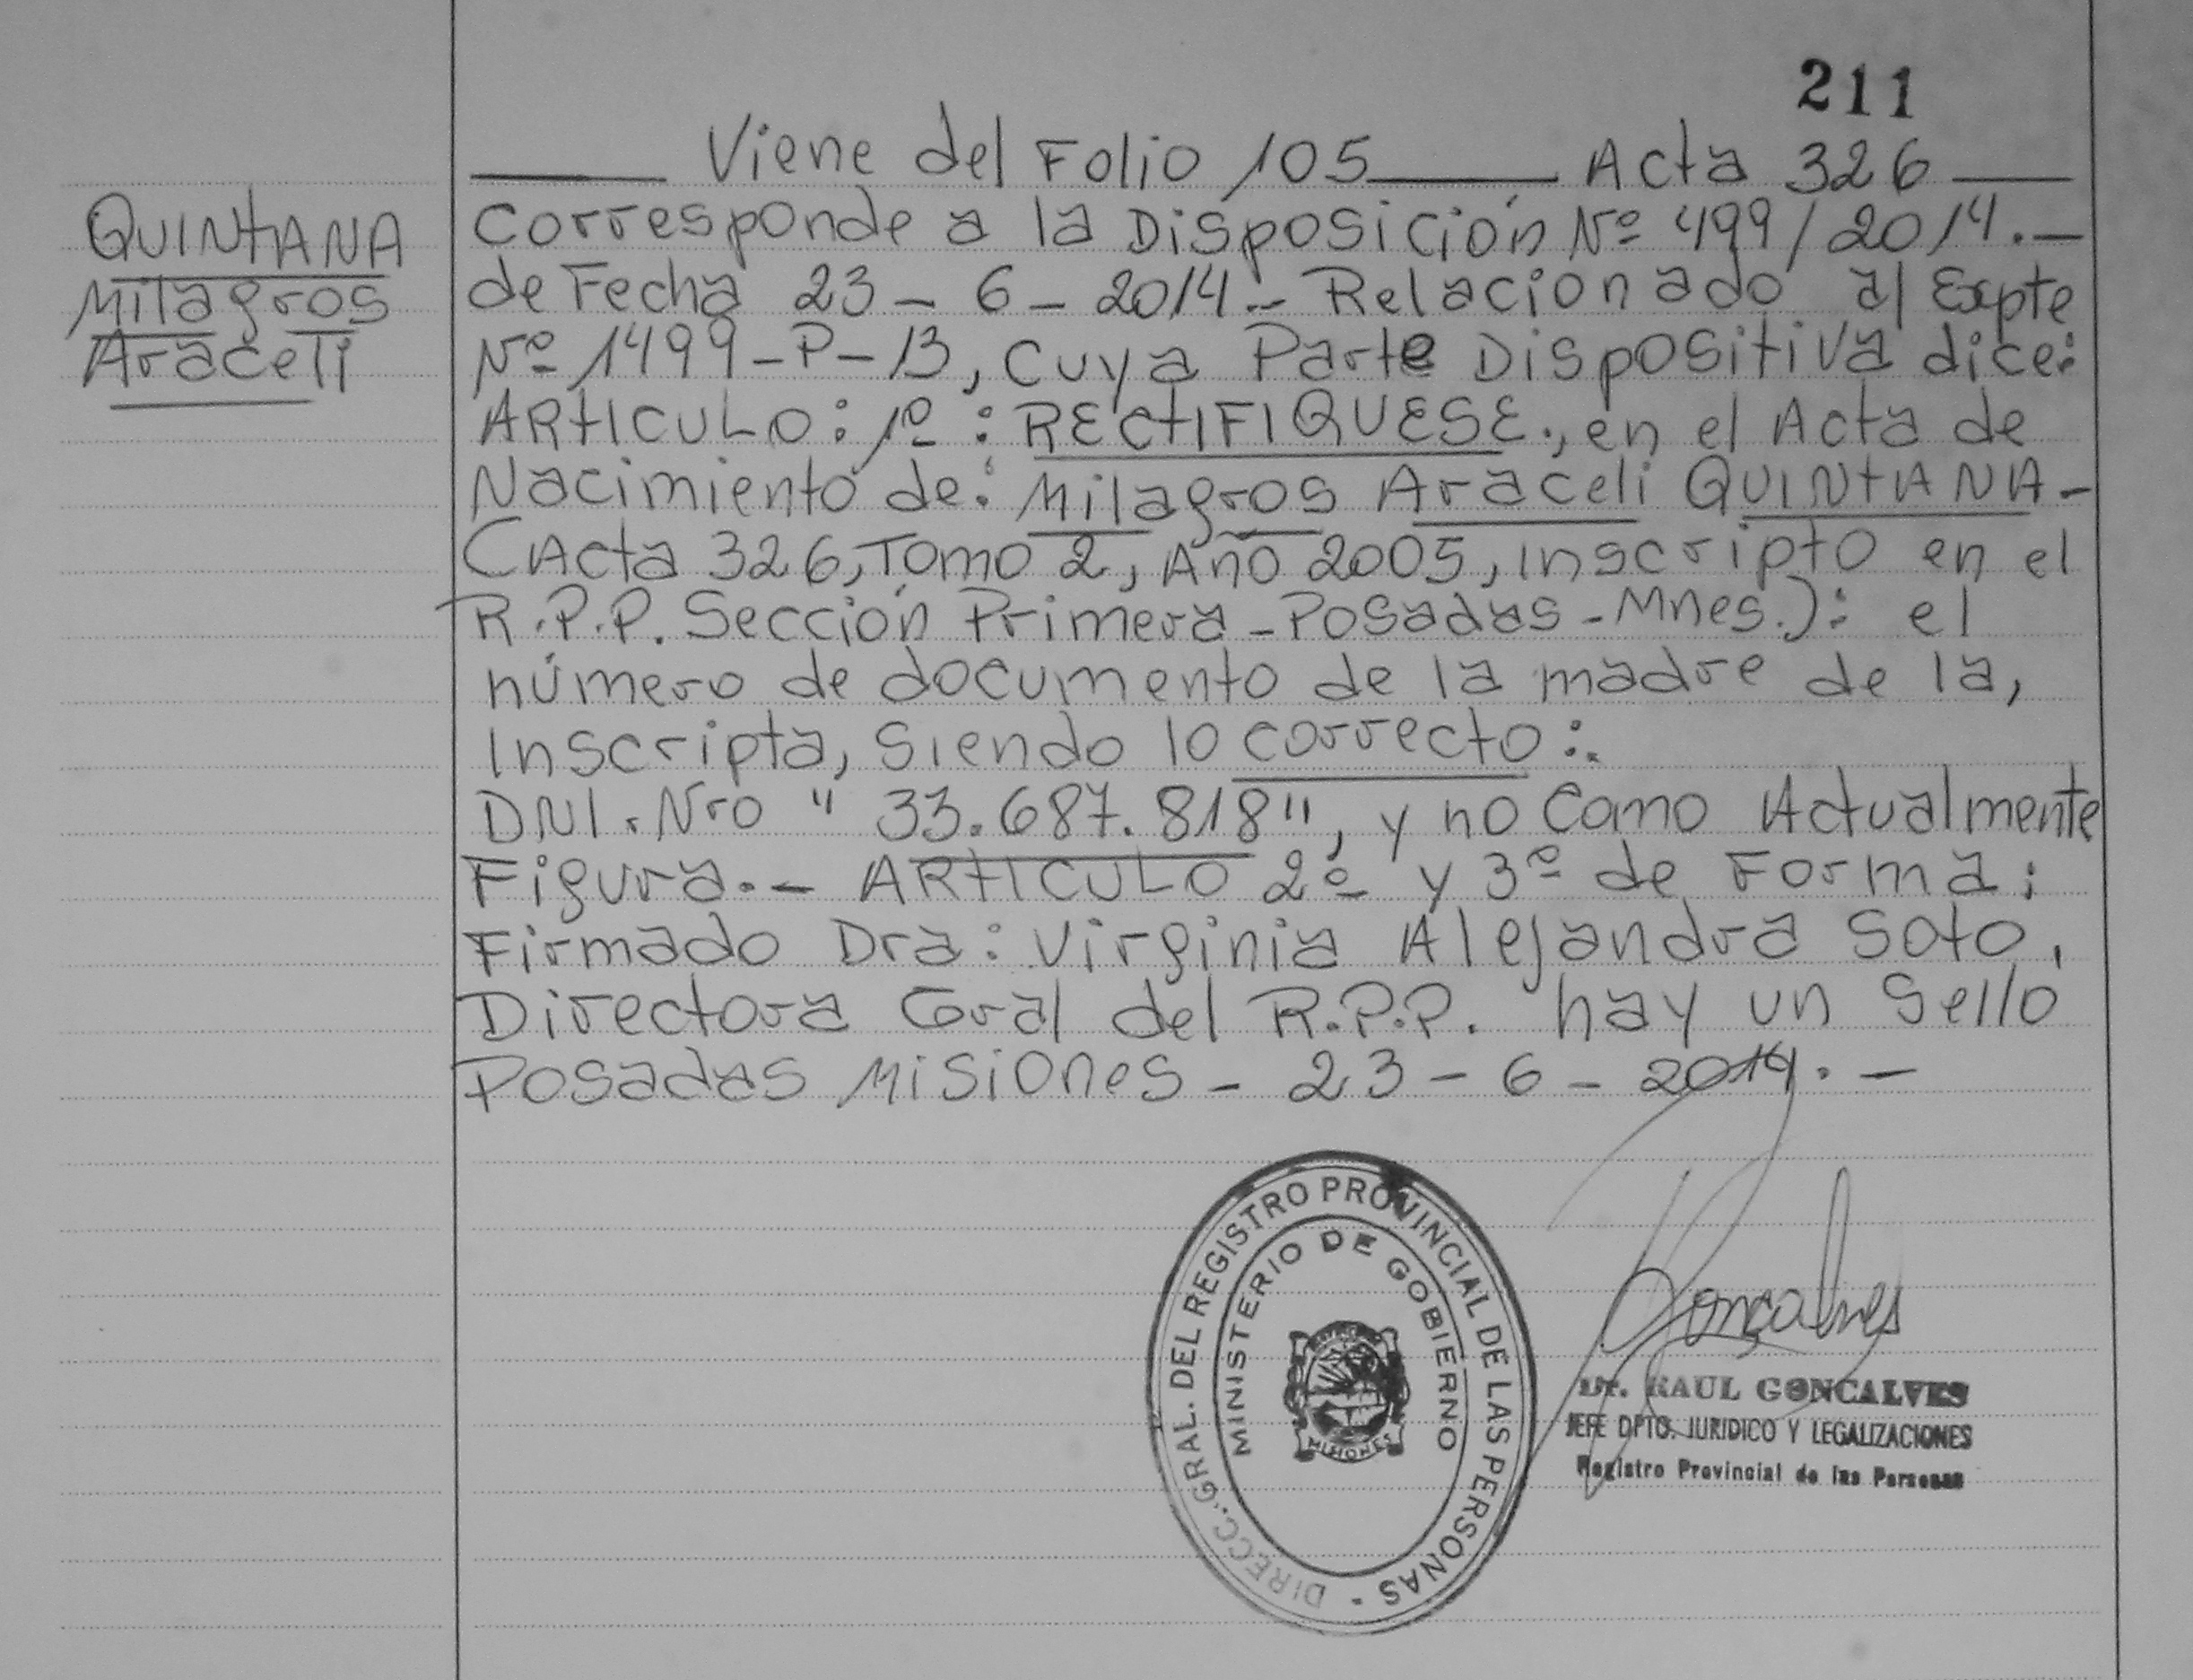 211
Viene del Folio 105 Acta 326
QUINTANA
Milagros
Araceli
Corresponde a la Disposición Nº 499/2014.-
de Fecha 23-6-2014.- Relacionado al Expte
Nº 1499-P-13, Cuya Parte Dispositiva dice:
ARTICULO: 1º: RECTIFIQUESE., en el Acta de
Nacimiento de: Milagros Araceli QUINTANA-
(Acta 326, Tomo 2, Año 2005, Inscripto en el
R.P.P. Sección Primera-Posadas-Mnes.): el
número de documento de la madre de la,
Inscripta, Siendo lo correcto:.
DNI. Nro " 33.687.818", y no Como Actualmente
Figura.- ARTICULO 2º y 3º de Forma;
Firmado Dra: Virginia Alejandra Soto,
Directora Gral del R.P.P. hay un Sello
Posadas Misiones - 23-6-2014.-
DIRECC. GRAL. DEL REGISTRO PROVINCIAL DE LAS PERSONAS -
MINISTERIO DE GOBIERNO
MISIONES
Goncalves
Dr. RAUL GONCALVES
JEFE DPTO. JURIDICO Y LEGALIZACIONES
Registro Provincial de las Personas